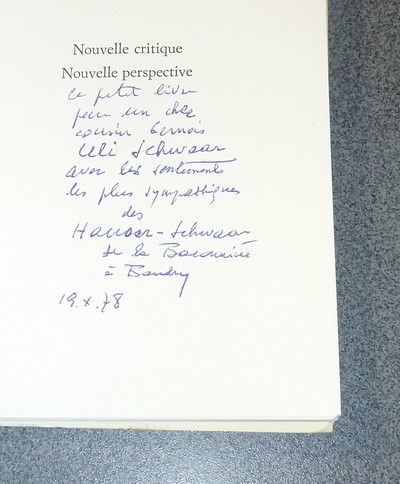 Nouvelle critique
Nouvelle perspective
ce petit livre
pour un cher
cousin bernois
Uli Schwaar
avec les sentiments
les plus sympathiques
des
Hauser-Schwaar
de la Baconnière
à Boudry
19.X.78